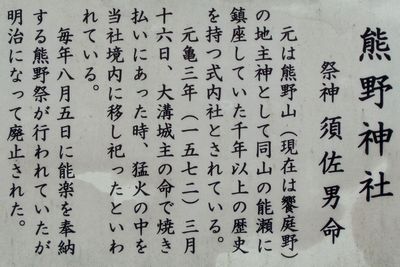 熊野神社
祭神 須佐男命
元は熊野山(現在は饗庭野)
の地主神として同山の能瀬に
鎮座していた千年以上の歴史
を持つ式内社とされている。
元亀三年(一五七二)三月
十六日、大溝城主の命で焼き
払いにあった時、猛火の中を
当社境内に移し祀ったといわ
れている。
毎年八月五日に能楽を奉納
する熊野祭が行われていたが
明治になって廃止された。